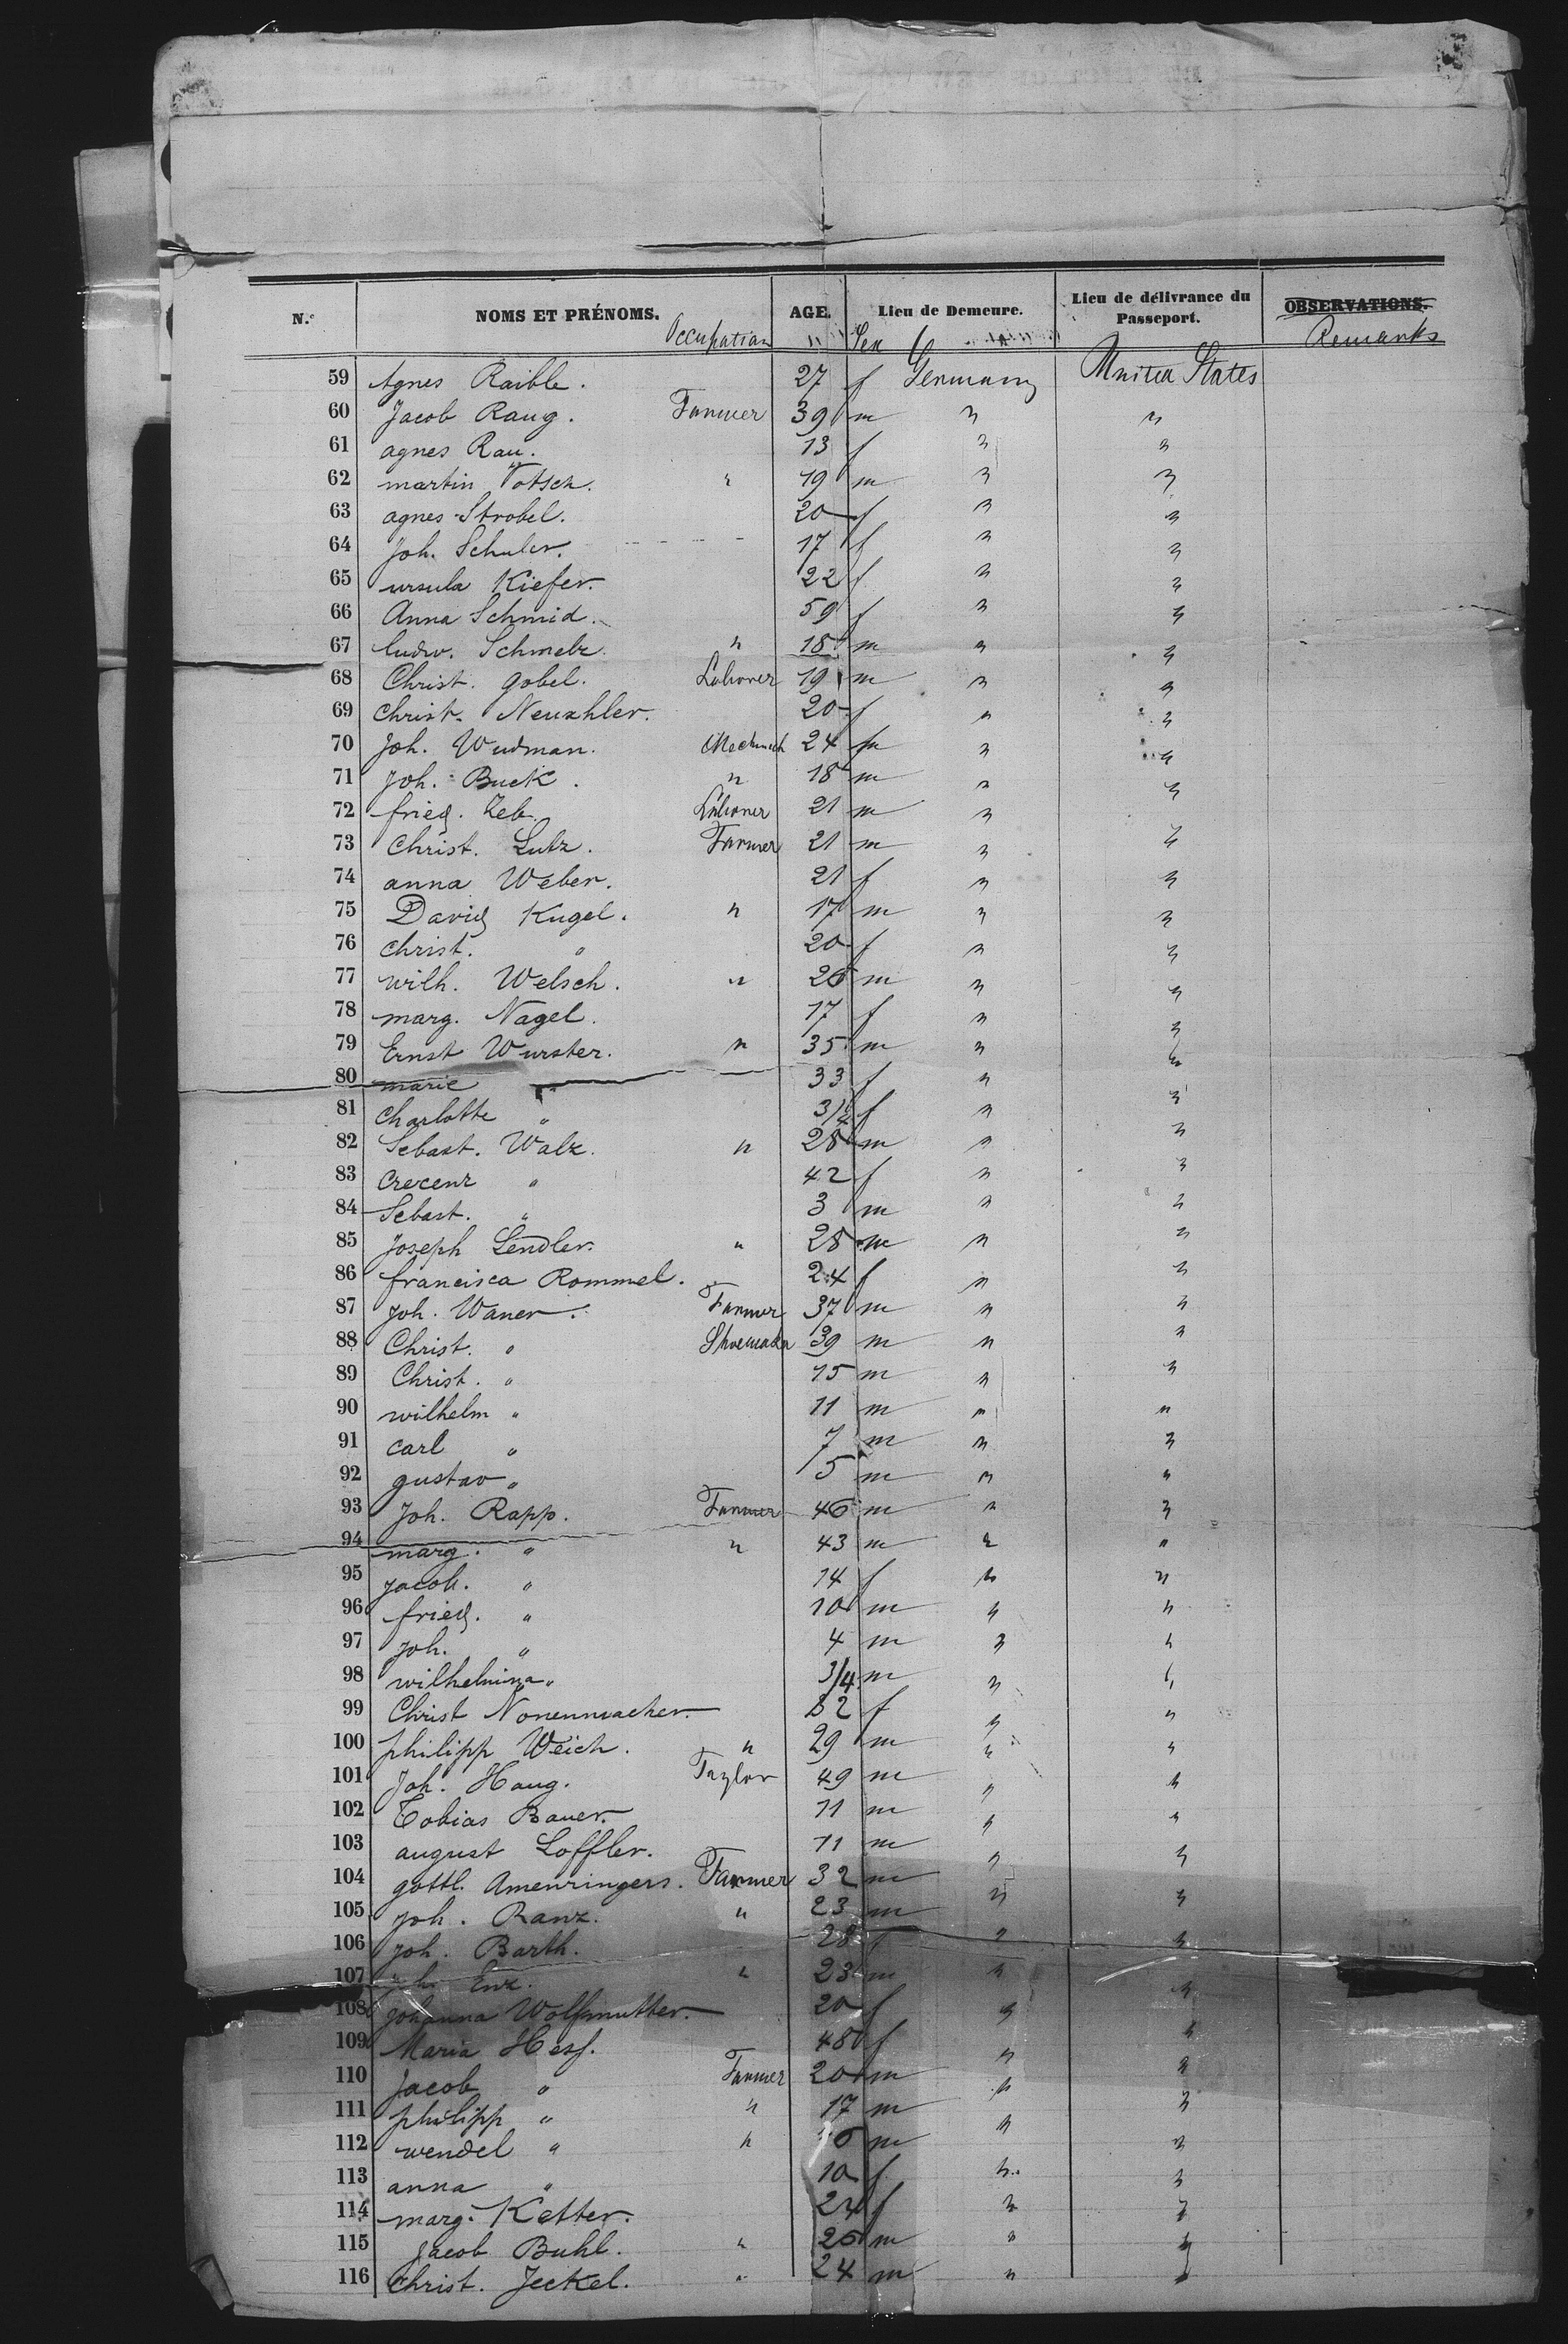 N.º NOMS ET PRÉNOMS. Occupation AGE. Sex Lieu de Demeure. Lieu de délivrance du Passeport. OBSERVATIONS. Remarks
59 Agnes Raible. 27 f Germany United States
60 Jacob Raug. Farmer 39 m " "
61 agnes Rau. 13 f " "
62 martin Votsch. " 19 m " "
63 agnes Strobel. 20 f " "
64 Joh. Schuler. 17 f " "
65 ursula Kiefer. 22 f " "
66 Anna Schmid. 59 f " "
67 ludw. Schmelz. " 18 m " "
68 Christ. gobel. Laborer 19 m " "
69 Christ. 20 f " "
70 Joh. Wudman. 24 m " "
71 Joh. Buck. " 18 m " "
72 fried. Zeb. Laborer 21 m " "
73 Christ. Lutz. Farmer 21 m " "
74 anna Weber. 21 f " "
75 David Kugel. " 17 m " "
76 christ. " 20 f " "
77 wilh. Welsch. " 26 m " "
78 marg. Nagel. 17 f " "
79 Ernst Wurster. " 35 m " "
80 marie " 33 f " "
81 Charlotte " 3/4 f " "
82 Sebast. Walz. " 28 m " "
83 Crecenz " 42 f " "
84 Sebast. " 3 m " "
85 Joseph Lendler. " 28 m " "
86 francisca Rommel. 24 f " "
87 Joh. Waner. Farmer 37 m " "
88 Christ. " Shoemaker 39 m " "
89 Christ. " 15 m " "
90 wilhelm " 11 m " "
91 carl " 7 m " "
92 gustav " 5 m " "
93 Joh. Rapp. Farmer 46 m " "
94 marg. " " 43 m " "
95 Jacob. " 14 f " "
96 fried. " 10 m " "
97 Joh. " 4 m " "
98 wilhelmina " 3/4 m " "
99 Christ Nonenmacher. f " "
100 philipp Weich. " 29 m " "
101 Joh. Haug. Taylor 49 m " "
102 Tobias Bauer. 11 m " "
103 august Loffler. 11 m " "
104 gottl. Amenringers. Farmer 32 m " "
105 Joh. Ranz. " 23 m " "
106 Joh. Barth. 28 " "
107 Joh. Enz. " 23 m " "
108 Johanna Wolfsmutter. 20 f " "
109 Maria Hess. 48 f " "
110 Jacob " Farmer 20 m " "
111 philipp " " 17 m " "
112 wendel " " 16 m " "
113 anna " 10 f " "
114 marg. Ketter. 24 f " "
115 Jacob Buhl. " 26 m " "
116 Christ. Jeckel. " 24 m " "